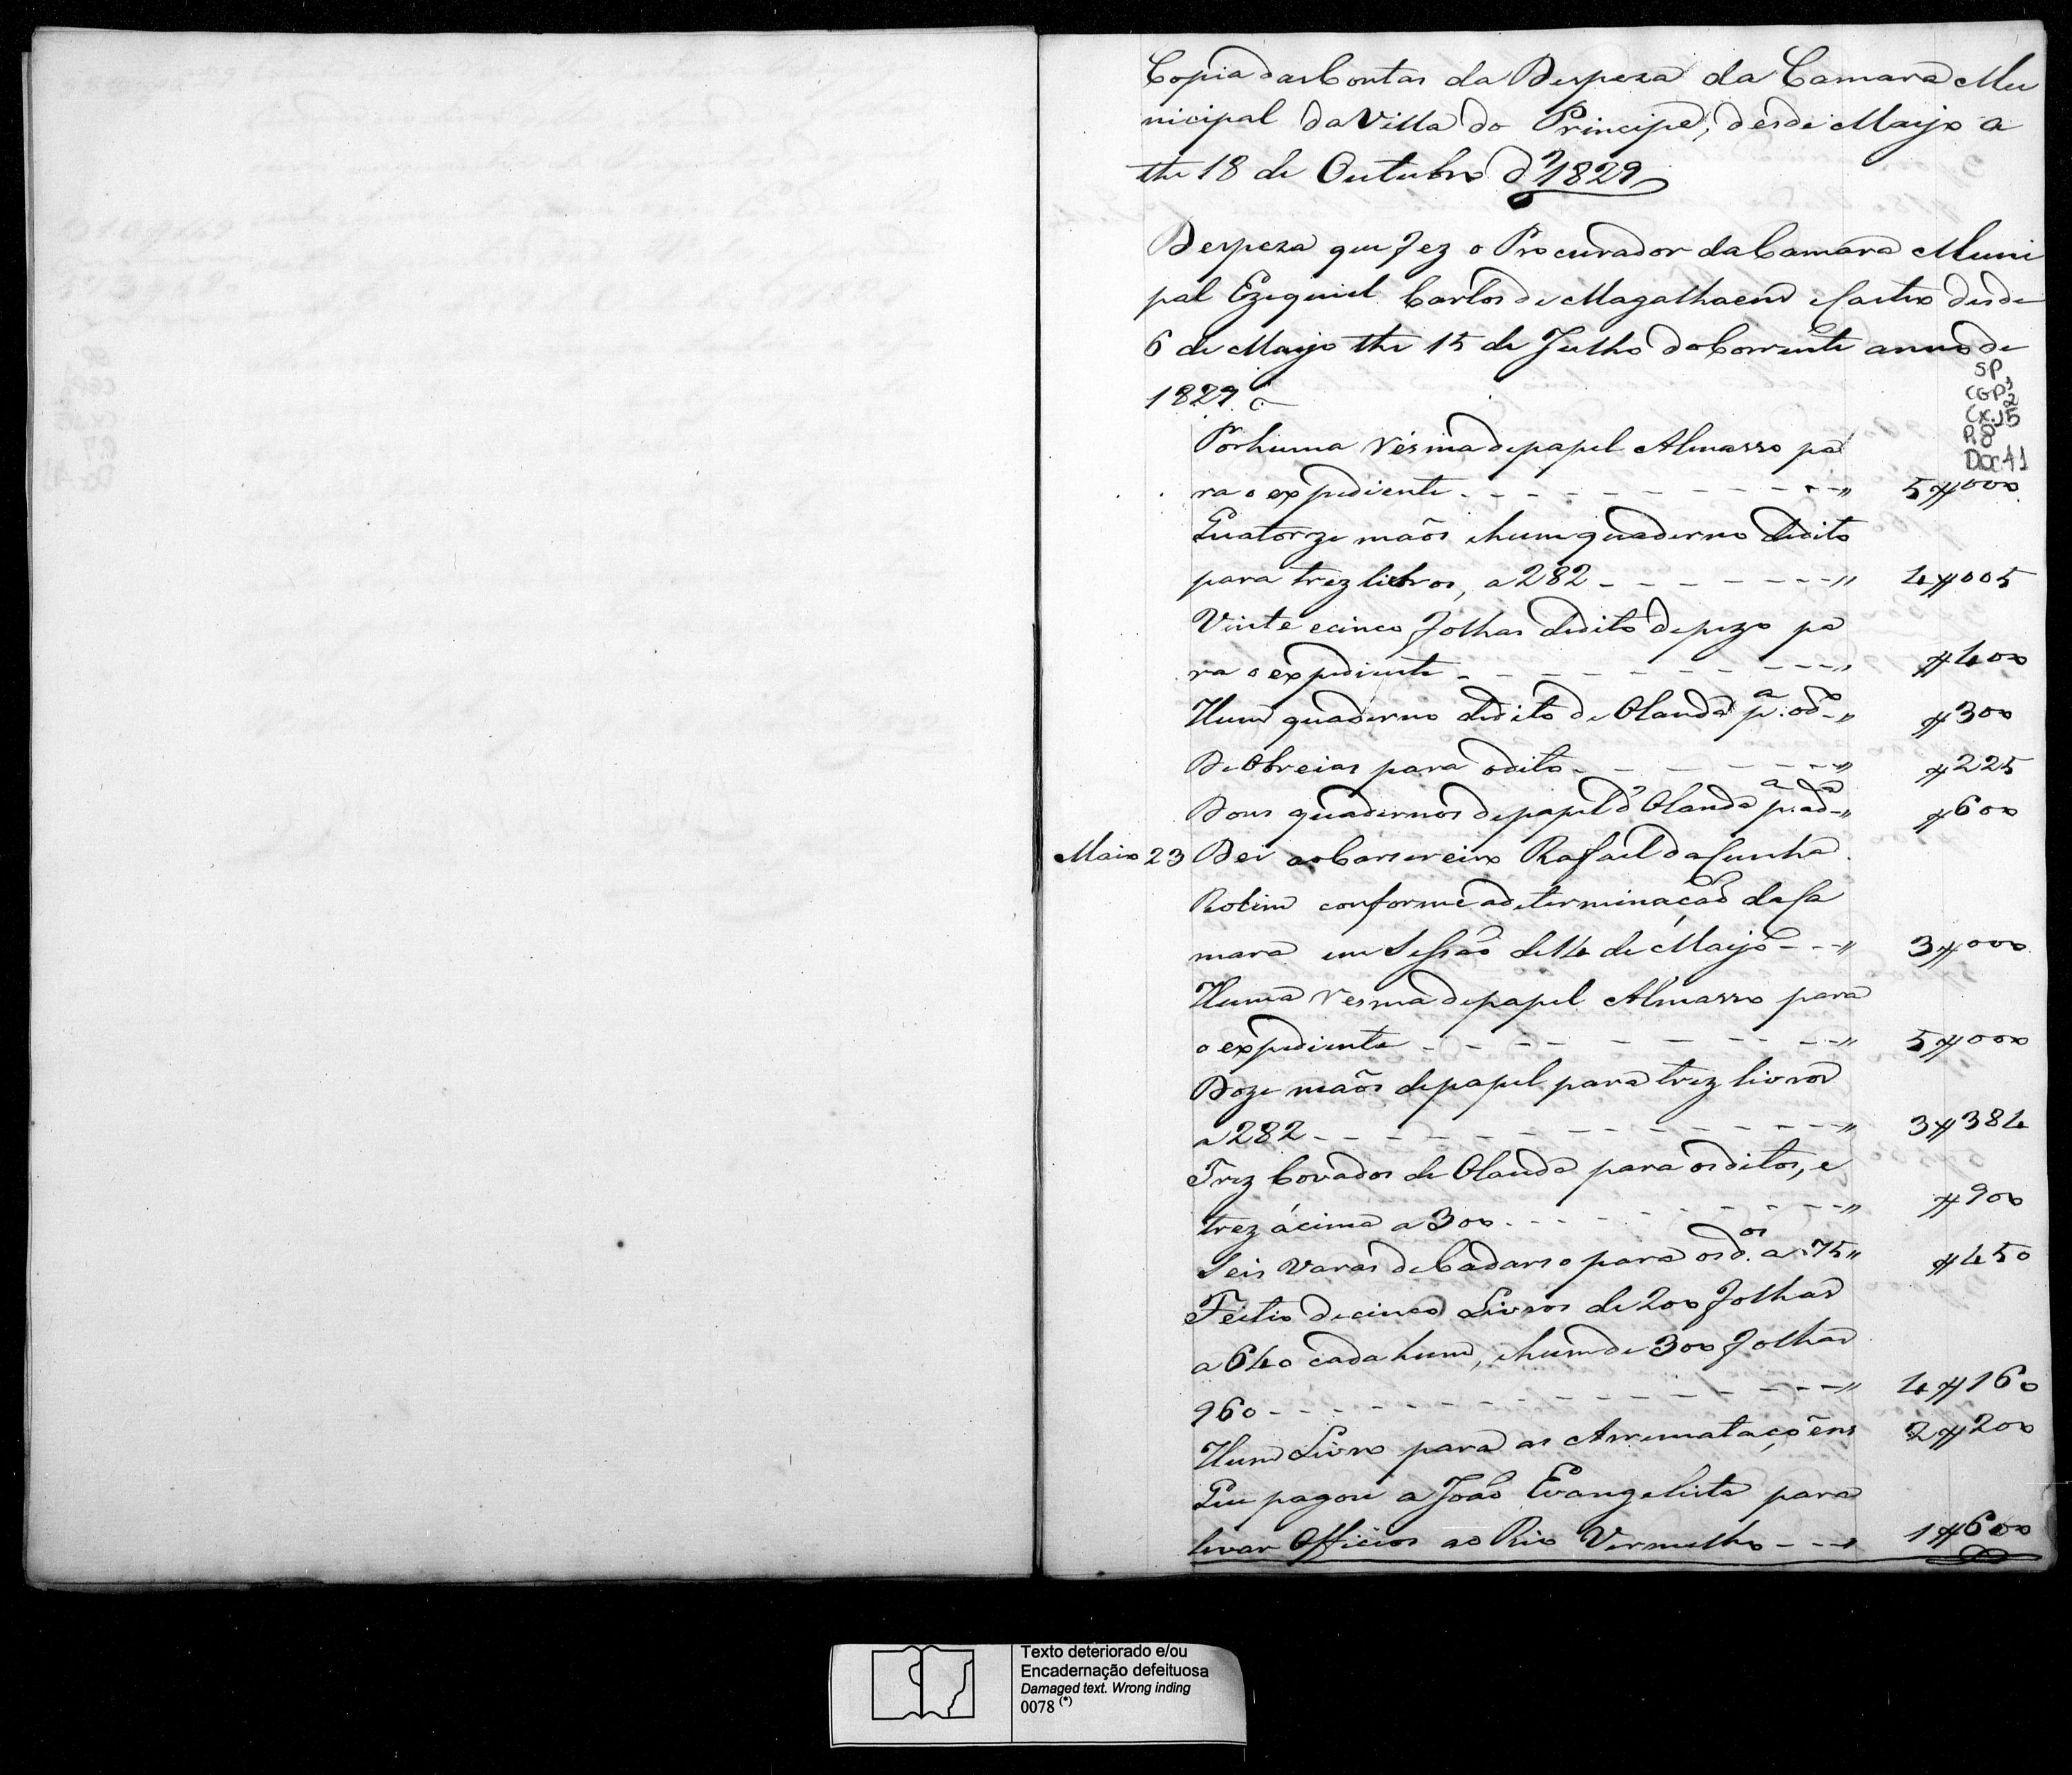 Copia das Contas da Despeza da Camara Mu
nicipal da Villa do Principe, desde Maijo a
the 18 de Outubro d'1829
Despeza que fez o Procurador da Camara Muni
pal Ezequiel Carlos de Magalhaens e Castro desde
6 de Maijo the 15 de Julho do Corrente anno de
1829
SP
CGP1
Cx.25
P.8
Doc 41
Por huma résma de papel Almasso pa
ra o expediente - - - - - - - - - " 5$000
Quatorze maõs e hum quaderno de dito
para trez livros, a 282 - - - - - - - " 4$005
Vinte e cinco folhas de dito de pezo pa
ra o expediente - - - - - - - - - " $400
Hum quaderno de dito de Olanda p.a o d.o - " $300
De Obreias para o dito - - - - - - - " $225
Dous quadernos de papel d'Olanda p.a a d.a - " $600
Maio 23 Dei ao Carsereiro Rafael da Cunha
Rolim conforme a determinaçaõ da Ca
mara em Sessaõ de 14 de Maijo - - - " 3$000
Huma resma de papel Almasso para
o expediente - - - - - - - - - " 5$000
Doze maõs de papel para trez livros
a 282 - - - - - - - - - - - " 3$384
Trez Covados de Olanda para os ditos, e
trez ácima a 300 - - - - - - - - " $900
Seis Varas de Cadarso para os d.os a 75 " $450
Feitio de cinco Livros de 200 folhas
a 640 cada hum, e hum de 300 folhas
960 - - - - - - - - - - - " 4$160
Hum Livro para as Arremataçoẽns 2$200
Que pagou a Joaõ Evangelista para
levar Officios ao Rio Vermelho - - - " 1$600
Texto deteriorado e/ou
Encadernação defeituosa
Damaged text. Wrong inding
0078 (*)